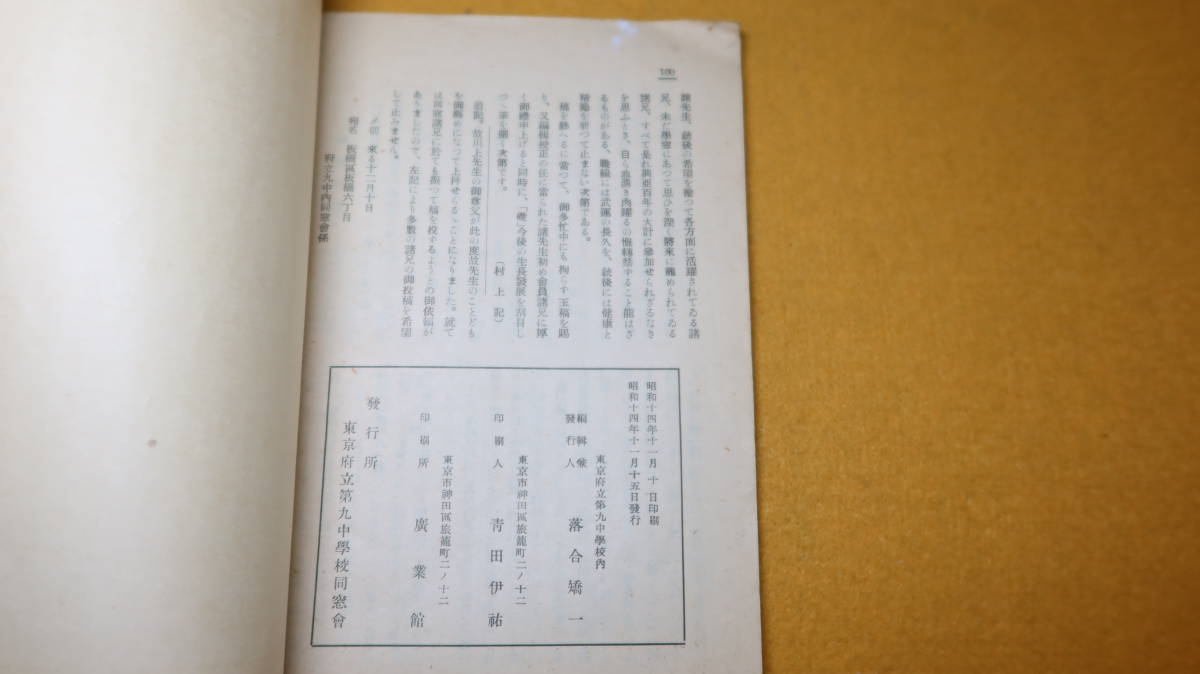 100
諸先生、銃後の希望を擔つて各方面に活躍されてゐる諸
兄、未だ學窓にあつて思ひを深く將來に籠められてゐる
諸兄、すべて是れ興亞百年の大計に參加せられざるなき
を思ふとき、自ら血湧き肉躍るの慨轉禁ずること能はざ
るものがある、戰線には武運の長久を、銃後には健康と
精勵を祈つて止まない次第である。
稿を終へるに當つて、御多忙中にも拘らず玉稿を賜
り、又編輯校正の任に當られた諸先生初め會員諸兄に厚
く御禮申上げると同時に、「礎」今後の生長發展を刮目し
つゝ筆を擱く次第です。
(村上記)
追記。故川上先生の御尊父が此の度故先生のことども
を御纏めになつて上梓せらるゝことになりました。就て
は同窓諸兄に於ても振つて稿を投ずるようとの御依頼が
ありましたので、左記により多數の諸兄の御投稿を希望
して止みません。
〆切 來る十二月十日
宛名 板橋區板橋六丁目
府立九中內同窓會係
昭和十四年十一月 十日印刷
昭和十四年十一月十五日發行
東京府立第九中學校內
編輯兼
發行人 落合矯一
東京市神田區旅籠町二ノ十二
印刷人 靑田伊祐
東京市神田區旅籠町二ノ十二
印刷所 廣業館
發行所
東京府立第九中學校同窓會